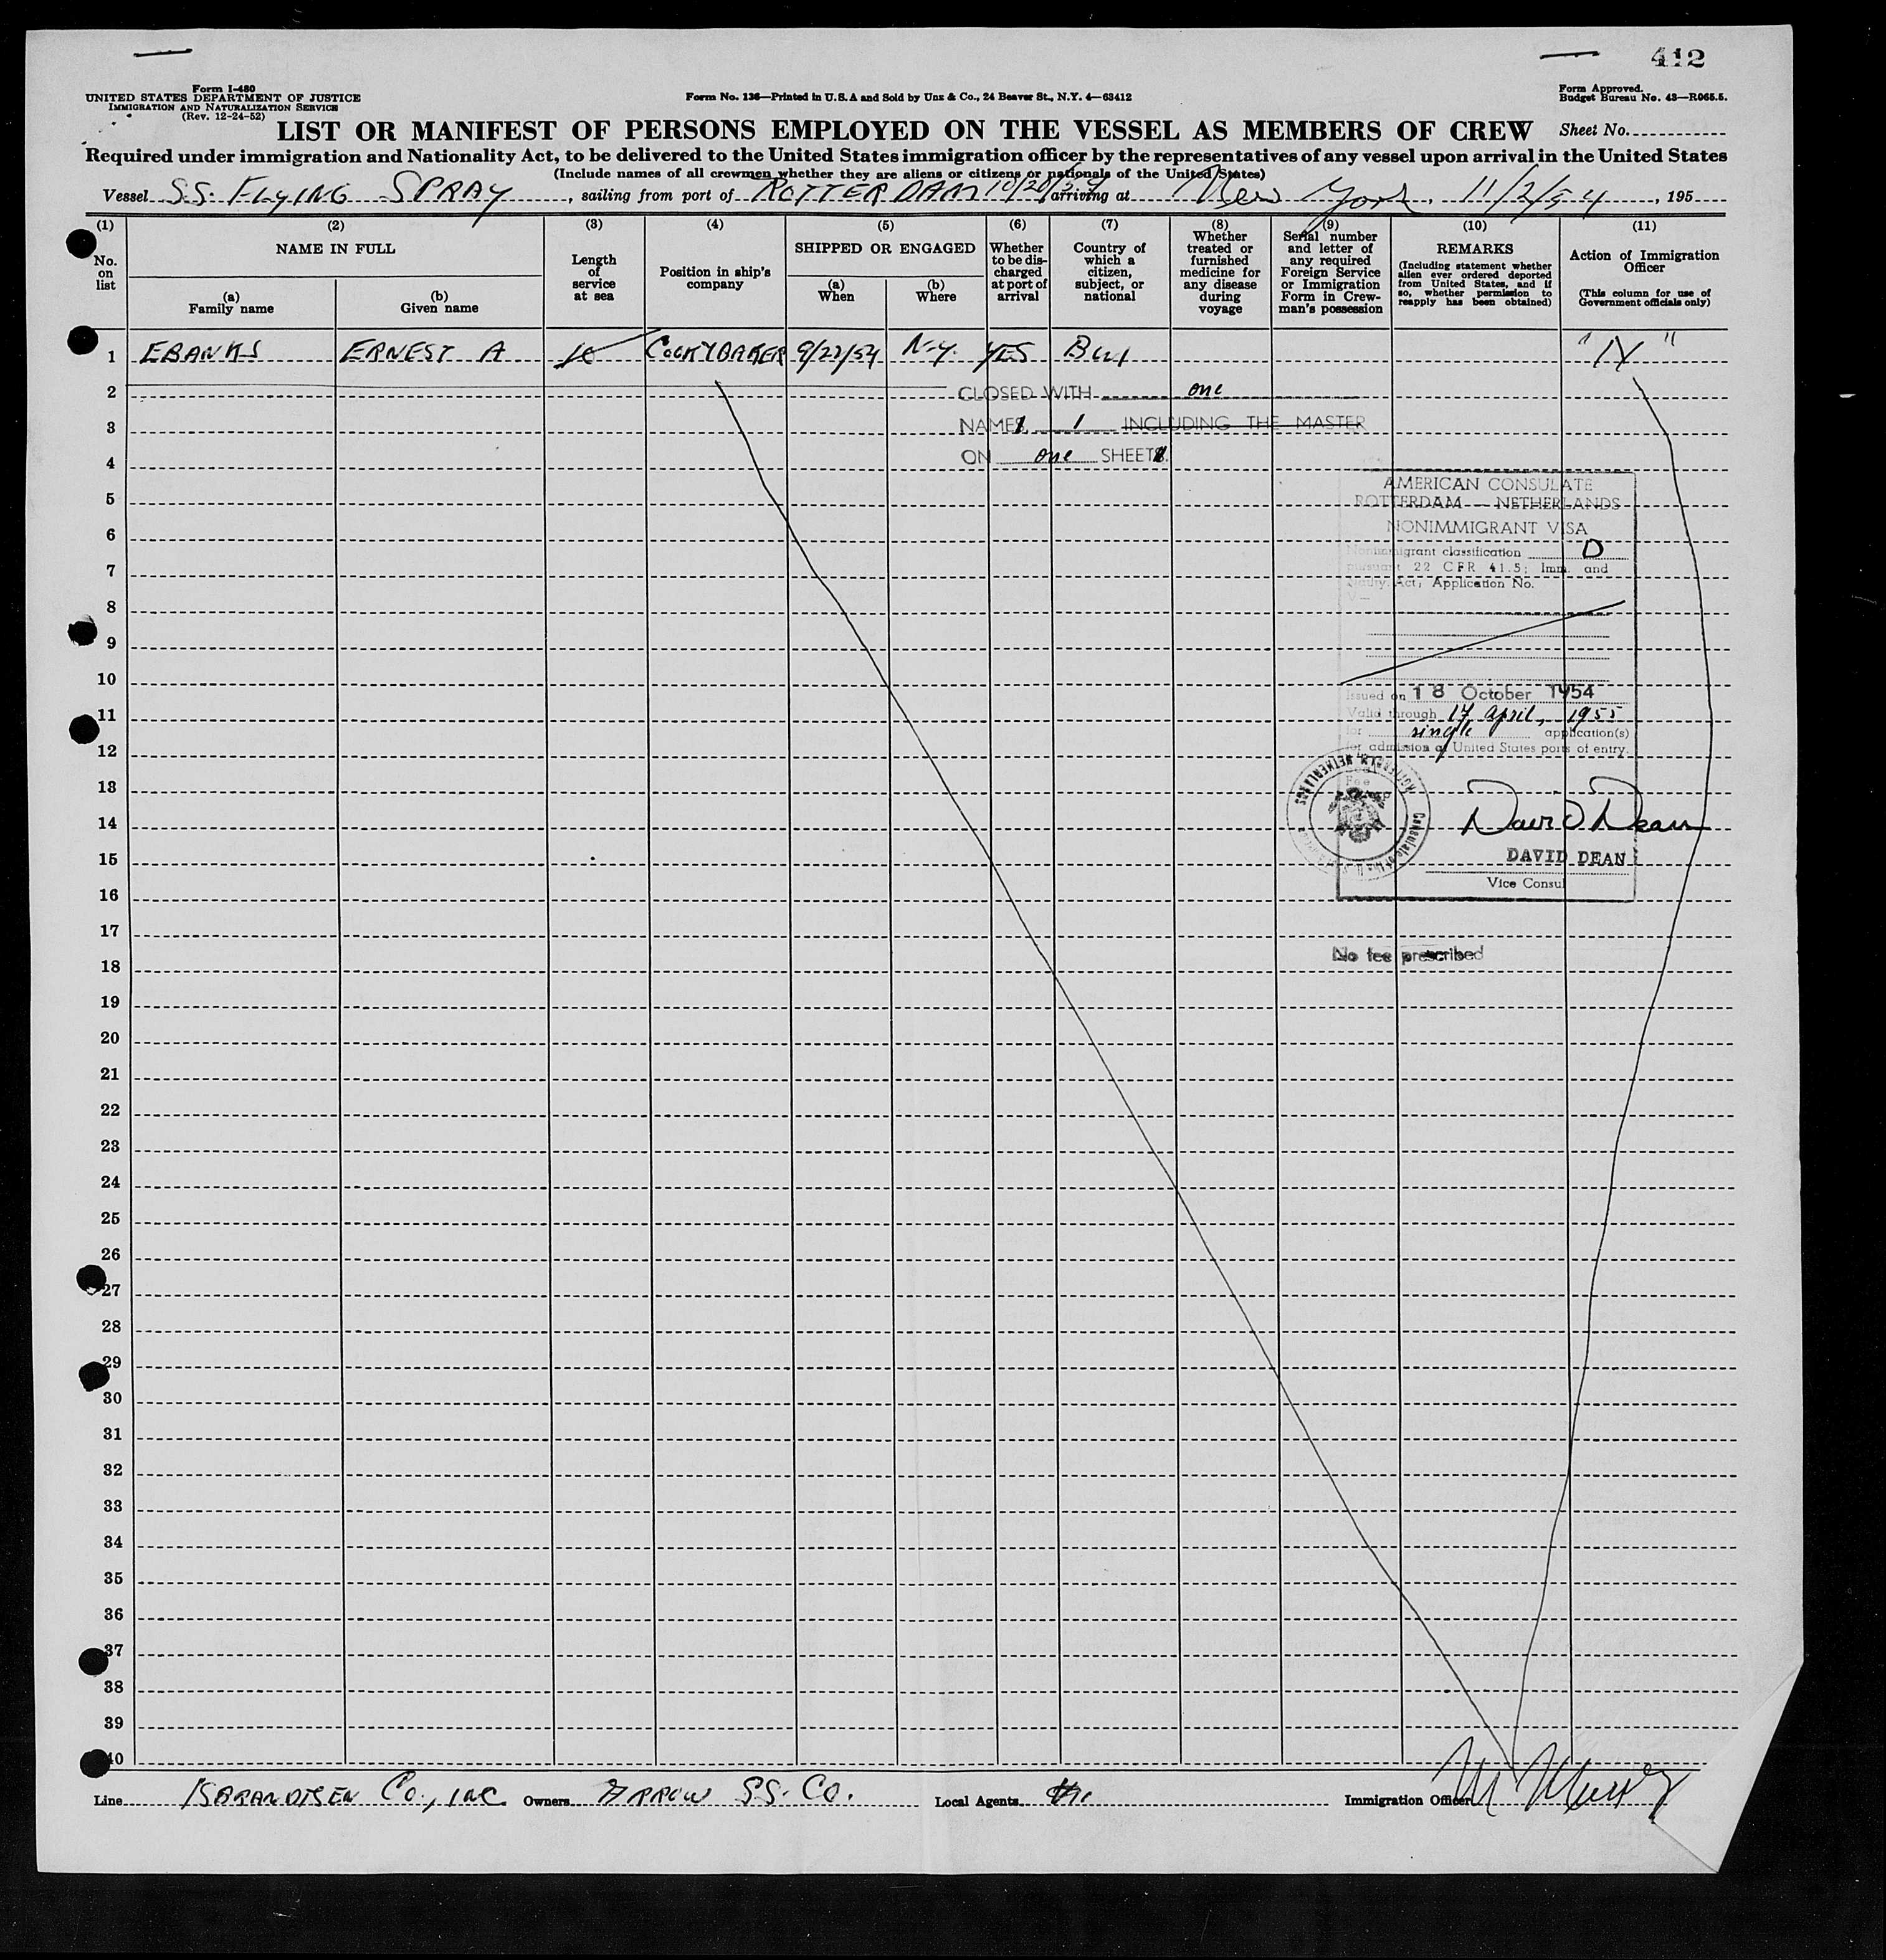 412
Form I-480
UNITED STATES DEPARTMENT OF JUSTICE
IMMIGRATION AND NATURALIZATION SERVICE
(Rev. 12-24-52)
Form No. 136—Printed in U.S.A and Sold by Unz & Co., 24 Beaver St., N.Y. 4—63412
Form Approved.
Budget Bureau No. 43—R065.5.
LIST OR MANIFEST OF PERSONS EMPLOYED ON THE VESSEL AS MEMBERS OF CREW
Sheet No.
Required under immigration and Nationality Act, to be delivered to the United States immigration officer by the representatives of any vessel upon arrival in the United States
(Include names of all crewmen whether they are aliens or citizens or nationals of the United States)
Vessel S.S. FLYING SPRAY, sailing from port of ROTTERDAM 10/20/54 arriving at New York, 11/2/54, 195
(1) No. on list
(2) NAME IN FULL
(a) Family name
(b) Given name
(3) Length of service at sea
(4) Position in ship's company
(5) SHIPPED OR ENGAGED
(a) When
(b) Where
(6) Whether to be discharged at port of arrival
(7) Country of which a citizen, subject, or national
(8) Whether treated or furnished medicine for any disease during voyage
(9) Serial number and letter of any required Foreign Service or Immigration Form in Crewman's possession
(10) REMARKS
(Including statement whether alien ever ordered deported from United States, and if so, whether permission to reapply has been obtained)
(11) Action of Immigration Officer
(This column for use of Government officials only)
1 EBANKS ERNEST A COOK&BAKER 9/22/54 N.Y. YES
2
CLOSED WITH one
3
NAMES 1 INCLUDING THE MASTER
4
ON one SHEET
AMERICAN CONSULATE
ROTTERDAM — NETHERLANDS
NONIMMIGRANT VISA
Nonimmigrant classification D
pursuant 22 CFR 41.5; Imm. and
Natlty. Act, Application No.
V—
Issued on 18 October 1954
Valid through 17 April, 1955
for single application(s)
for admission at United States ports of entry.
Fee
ROTTERDAM, NETHERLANDS
Consulate of the U.S.
David Dean
DAVID DEAN
Vice Consul
No fee prescribed
5
6
7
8
9
10
11
12
13
14
15
16
17
18
19
20
21
22
23
24
25
26
27
28
29
30
31
32
33
34
35
36
37
38
39
40
Line ISBRANDTSEN Co., INC. Owners ARROW SS. CO. Local Agents Immigration Officer